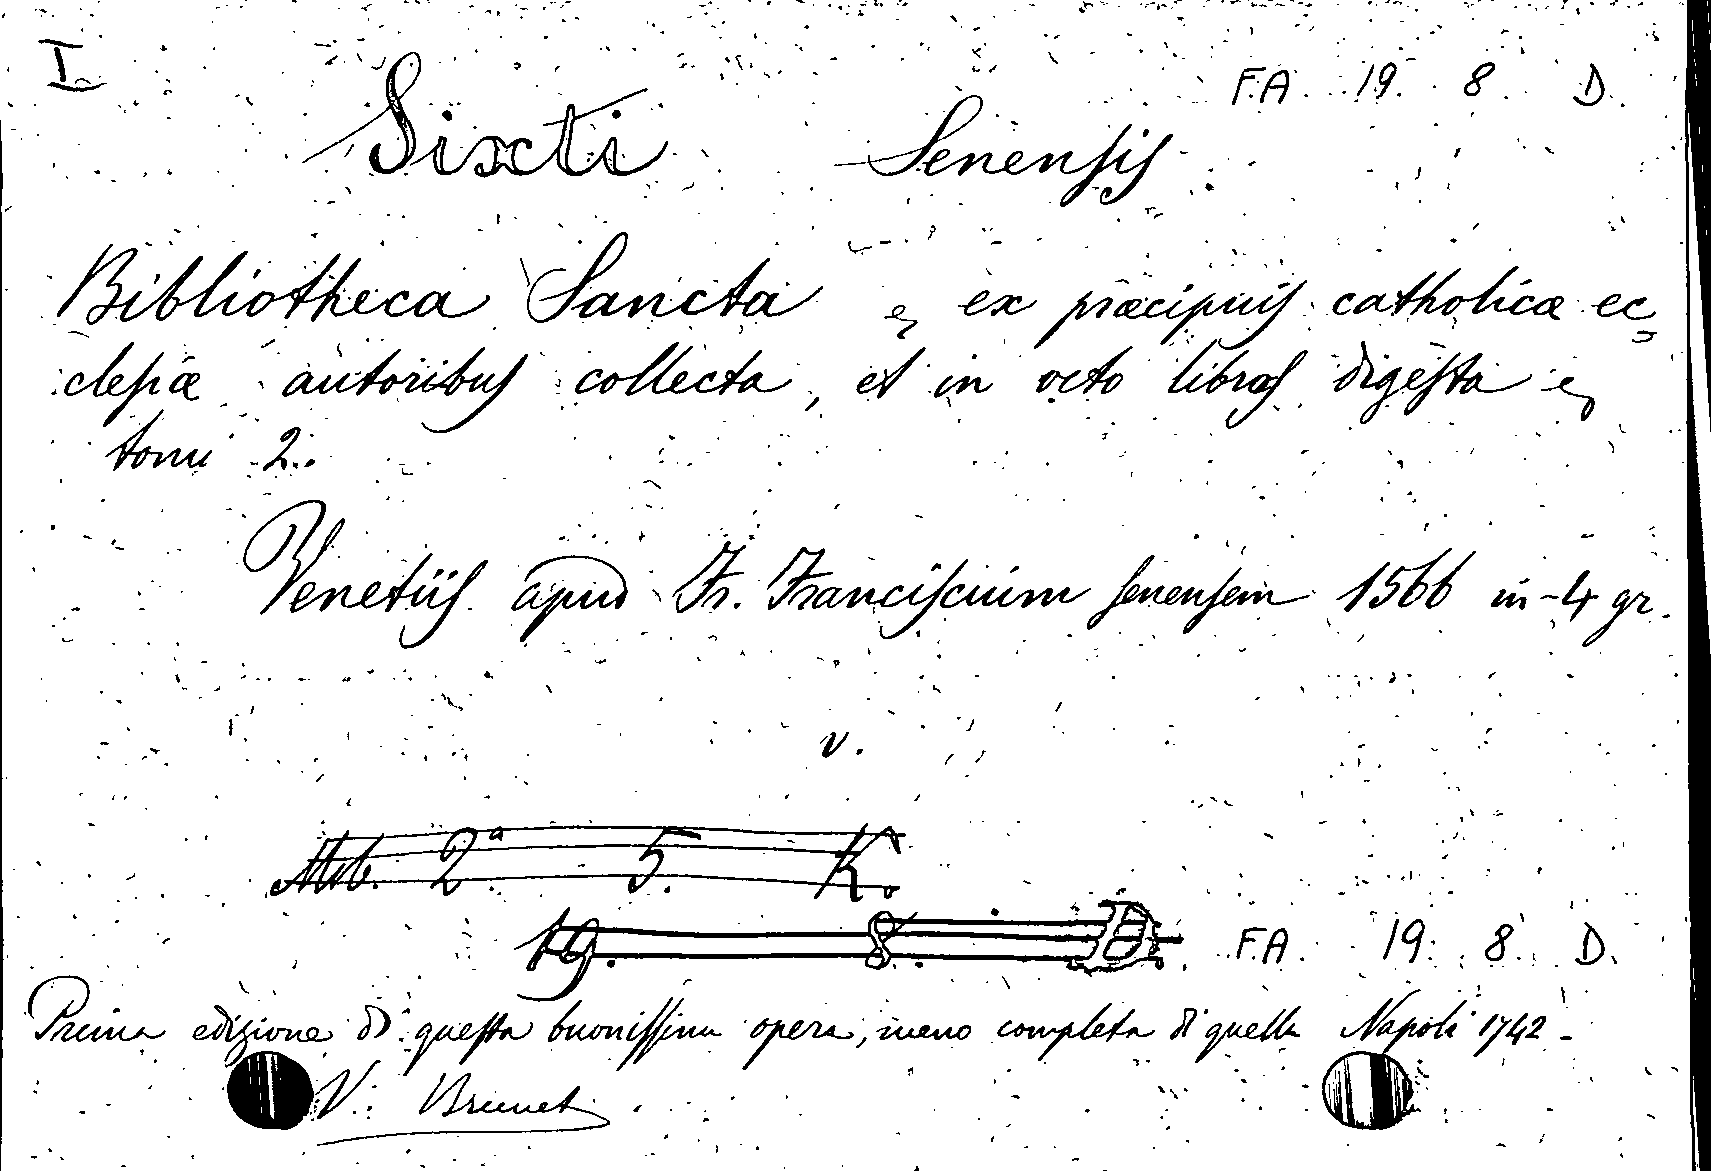 I
F.A. 19. 8. D.
Sixti Senensis
Bibliotheca Sancta ex præcipuis catholicæ ec
clesiæ autoribus collecta, et in octo libros digesta
tomi 2.
Venetiis apud Fr. Franciscium senensem 1566 in-4 gr.
v.
2a 5. K.
19. 8. D. F.A. 19. 8. D.
Prima edizione di questa buonissima opera, meno completa di quella Napoli 1742 -
V. Brunet